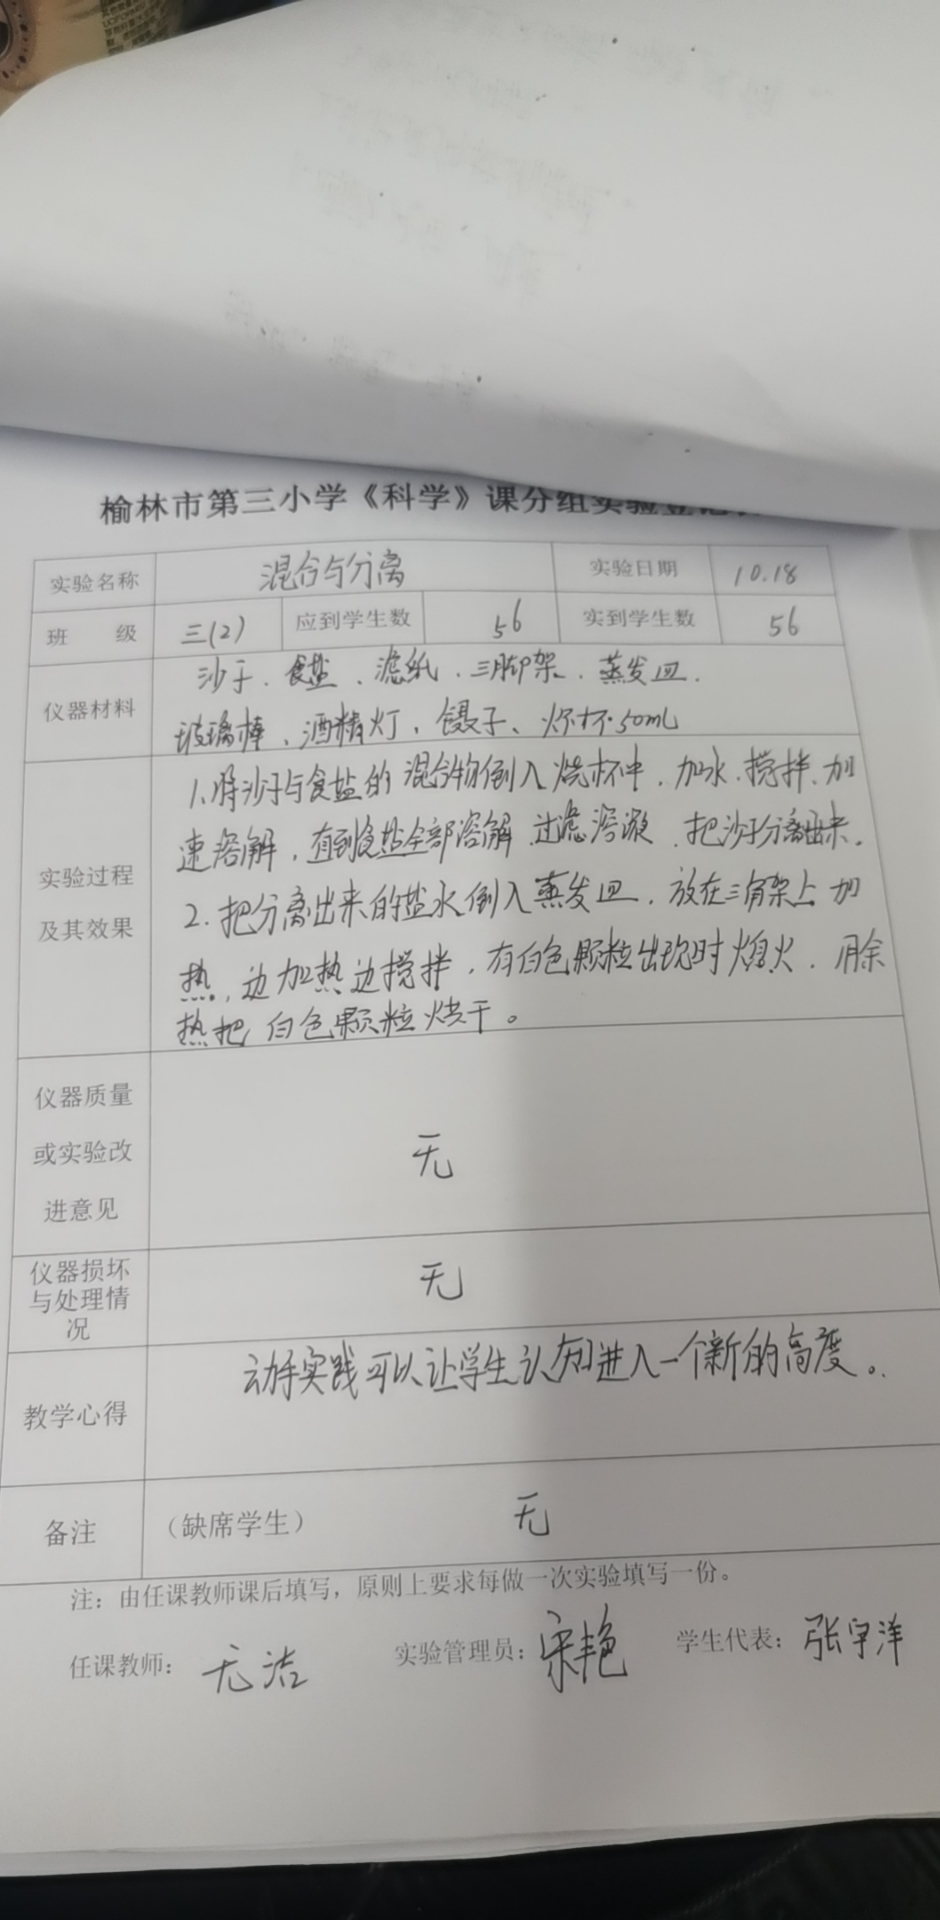 榆林市第三小学《科学》课分组实验登记
实验名称 混合与分离 实验日期 10.18
班 级 三(2) 应到学生数 56 实到学生数 56
仪器材料 沙子、食盐、滤纸、三脚架、蒸发皿、
玻璃棒、酒精灯、镊子、烧杯50mL
1.将沙子与食盐的混合物倒入烧杯中,加水、搅拌、加
速溶解,直到食盐全部溶解 过滤溶液,把沙子分离出来。
实验过程
及其效果
2.把分离出来的盐水倒入蒸发皿,放在三角架上加
热,边加热边搅拌,有白色颗粒出现时熄火,用余
热把白色颗粒烘干。
仪器质量
或实验改
进意见
无
仪器损坏
与处理情
况
无
教学心得 动手实践可以让学生认知进入一个新的高度。
备注 (缺席学生) 无
注:由任课教师课后填写,原则上要求每做一次实验填写一份。
任课教师: 洁 实验管理员:宋艳 学生代表:张宇洋